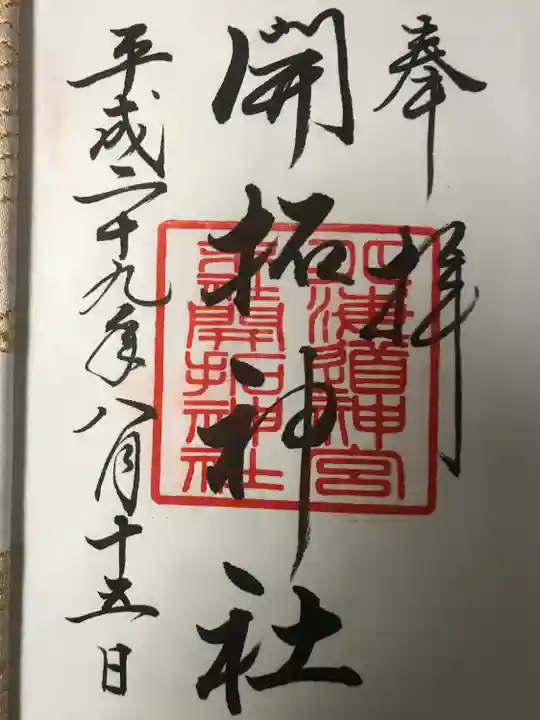 奉拝
開拓神社
北海道神宮
末社開拓神社
平成二十九年八月十五日